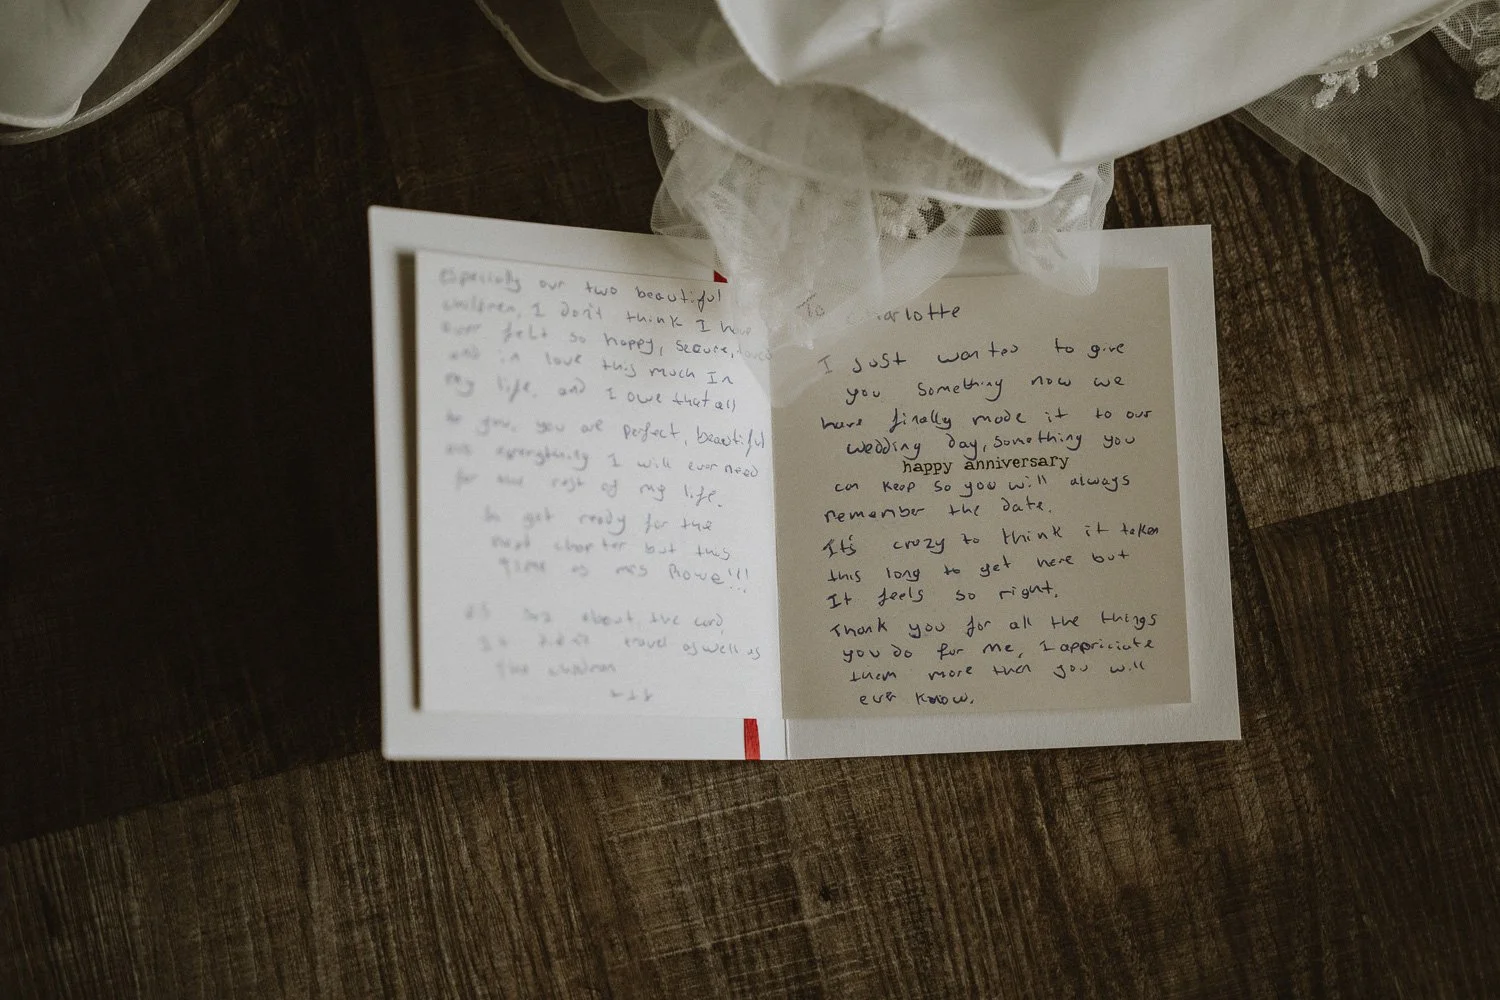 especially our two beautiful
children, I don't think I have
ever felt so happy, secure,
and in love this much In
my life, and I owe that all
to you, you are perfect, beautiful
everything I will ever need
for the rest of my life.
So get ready for the
next chapter but this
time as mrs Rowe!!!
about the card,
travel as well as
the children
To Charlotte
I just wanted to give
you something now we
have finally made it to our
wedding day, something you
happy anniversary
can keep so you will always
remember the date.
It's crazy to think it taken
this long to get here but
It feels so right.
Thank you for all the things
you do for me, I appriciate
them more then you will
ever know.